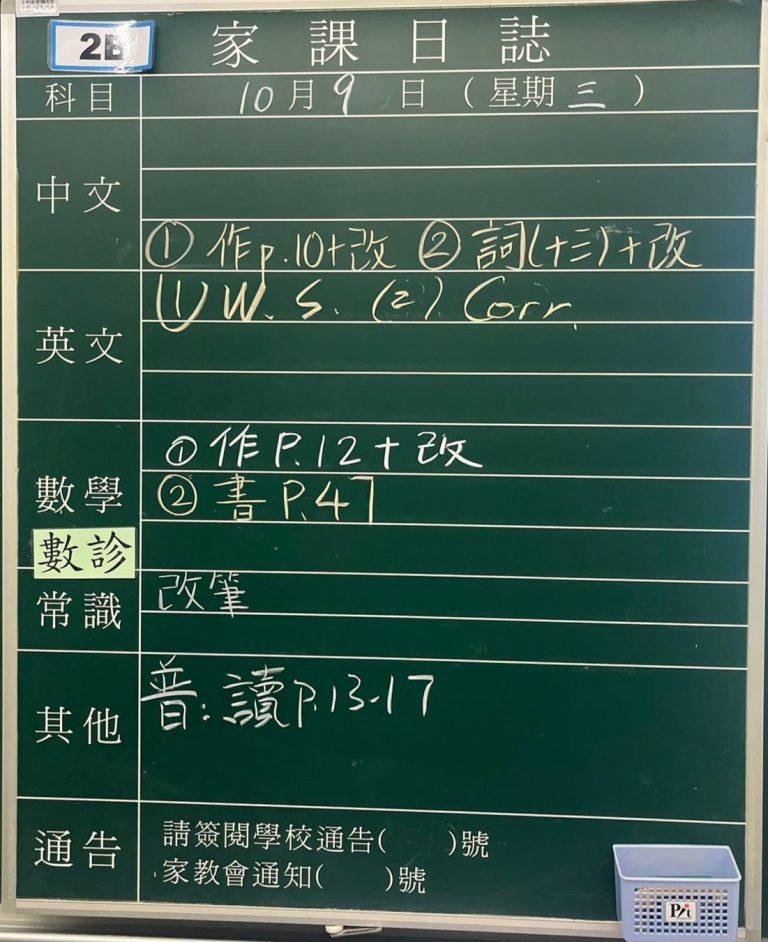 2B
家課日誌
科目 10月9日（星期三）
中文
① 作p.10+改 ② 詞(十三)+改
英文
(1) W.S. (2) Corr.
數學
① 作P.12+改
② 書P.47
數診
常識
改筆
其他
普：讀P.13-17
通告
請簽閱學校通告( )號
家教會通知( )號